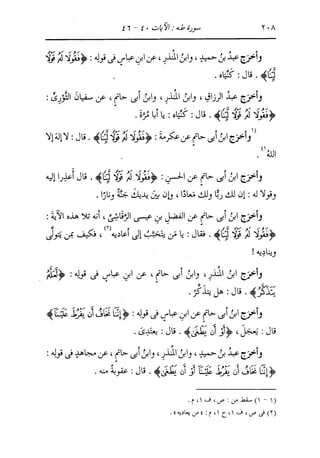 ٢٠٨ سورة طه : الآيات ٤٠ - ٤٦
وأخرج عبدُ بنُ حميدٍ ، وابنُ المُنذرِ ، عن ابنِ عباسٍ فى قولِه : ﴿فَقُولَا لَهُ قَوْلًا
لَّيِّنًا﴾ . قال : كنِّياه .
وأخرج عبدُ الرزاقِ ، وابنُ المنذرِ ، وابنُ أبى حاتمٍ ، عن سفيانَ الثَّوْرِىِّ :
﴿فَقُولَا لَهُ قَوْلًا لَّيِّنًا﴾ . قال : كنِّياه : يا أبا مُرَّةَ .
(١وأخرَج ابنُ أبى حاتمٍ عن عكرمةَ : ﴿فَقُولَا لَهُ قَوْلًا لَّيِّنًا﴾ . قال : لا إلهَ إلا
اللهُ١) .
وأخرج ابنُ أبى حاتمٍ عن الحسنِ : ﴿فَقُولَا لَهُ قَوْلًا لَّيِّنًا﴾ . قال أعذِرا إليه
وقولا له : إن لك ربًّا ولك مَعادًا ، وإن بينَ يديك جنَّةً ونارًا .
وأخرج ابنُ أبى حاتمٍ عن الفضلِ بنِ عيسى الرَّقاشىِّ ، أنه تلا هذه الآيةَ :
﴿فَقُولَا لَهُ قَوْلًا لَّيِّنًا﴾ . فقال : يا مَن يتحَبَّبُ إلى أعاديه(٢) ، فكيف بمن يتولَّى
ويناديه !
وأخرج ابنُ المُنذرِ ، وابنُ أبى حاتمٍ ، عن ابنِ عباسٍ فى قولِه : ﴿لَّعَلَّهُ
يَتَذَكَّرُ﴾ . قال : هل يتذكَّرُ .
وأخرج ابنُ أبى حاتمٍ عن ابنِ عباسٍ فى قولِه : ﴿إِنَّنَا نَخَافُ أَن يَفْرُطَ عَلَيْنَآ﴾
قال : يَعجَلَ ، ﴿أَوْ أَن يَطْغَى﴾ . قال : يعتدِىَ .
وأخرج عبدُ بنُ حميدٍ ، وابنُ المنذرِ ، وابنُ أبى حاتمٍ ، عن مجاهدٍ فى قولِه :
﴿إِنَّنَا نَخَافُ أَن يَفْرُطَ عَلَيْنَآ أَوْ أَن يَطْغَى﴾ . قال : عقوبةً منه .
(١ - ١) سقط من : ص ، ف ١ ، م .
(٢) فى ص ، ف ١ ، ح ١ ، م : « من يعاديه » .